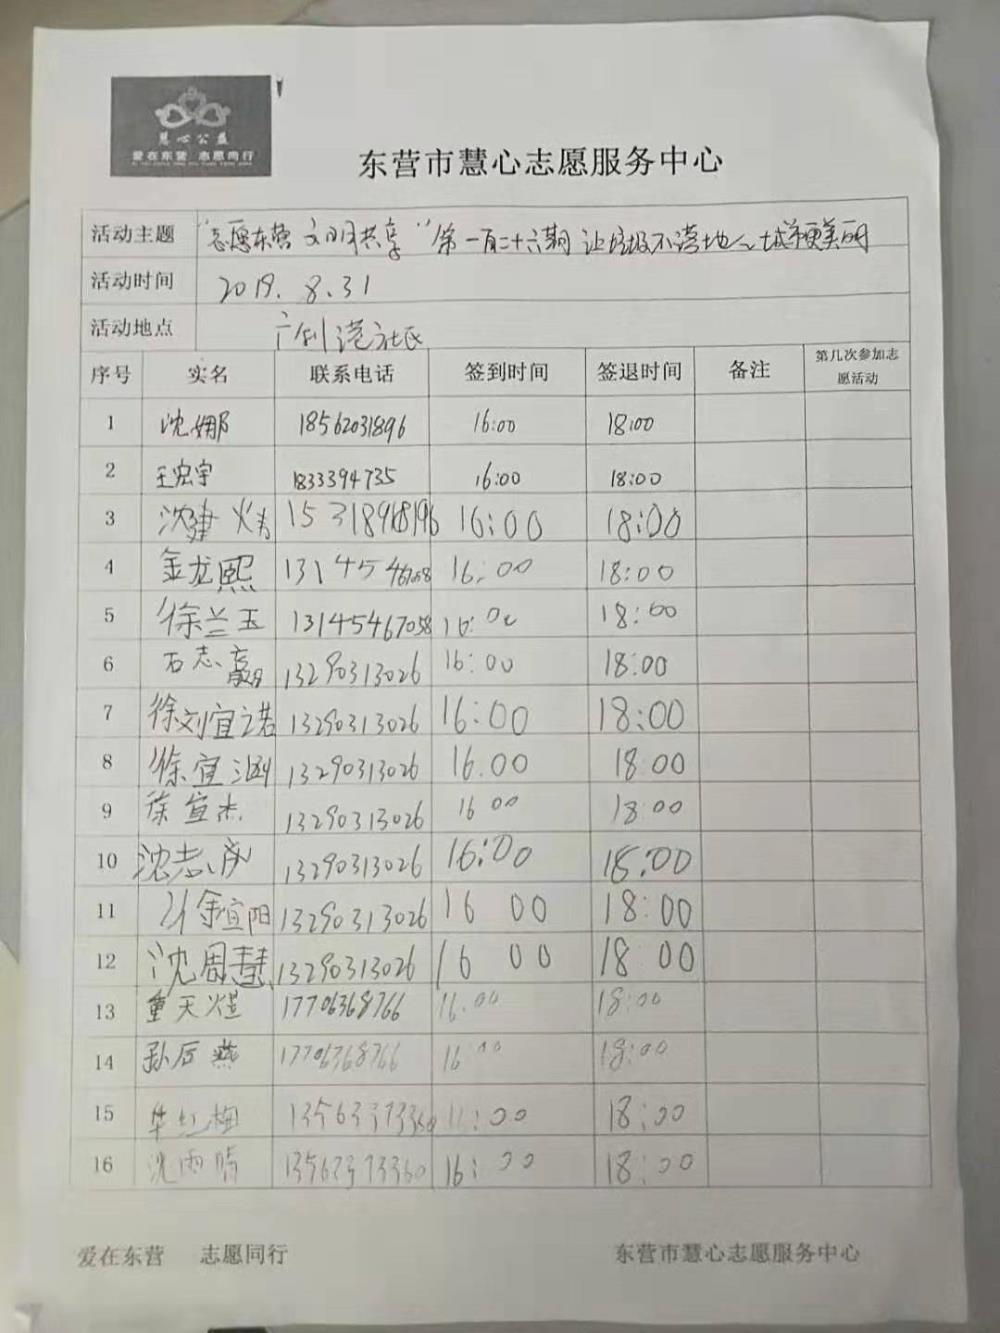 慧心公益
爱在东营 志愿同行
东营市慧心志愿服务中心
活动主题 "志愿东营 文明共享"第一百二十六期 让垃圾不落地 城市更美丽
活动时间 2019.8.31
活动地点 广利港社区
序号 实名 联系电话 签到时间 签退时间 备注 第几次参加志愿活动
1 沈娜 18562031896 16:00 18:00
2 王宏宇 1833394735 16:00 18:00
3 沈建 15318968196 16:00 18:00
4 金龙熙 16:00 18:00
5 徐兰玉 13145467058 16:00 18:00
6 石志赢 13290313026 16:00 18:00
7 徐刘宜诺 13290313026 16:00 18:00
8 徐宜涵 13290313026 16.00 18:00
9 徐宜杰 13290313026 16 00 18:00
10 沈志 13290313026 16:00 18:00
11 徐宜阳 13290313026 16 00 18:00
12 沈周慧 13290313026 16 00 18 00
13 董天煜 17706368766 16:00 18:00
14 孙后燕 17706368766 16 00 18:00
15 红梅 13563373360 :00 18:00
16 沈雨晴 13563373360 16:00 18:00
爱在东营 志愿同行 东营市慧心志愿服务中心